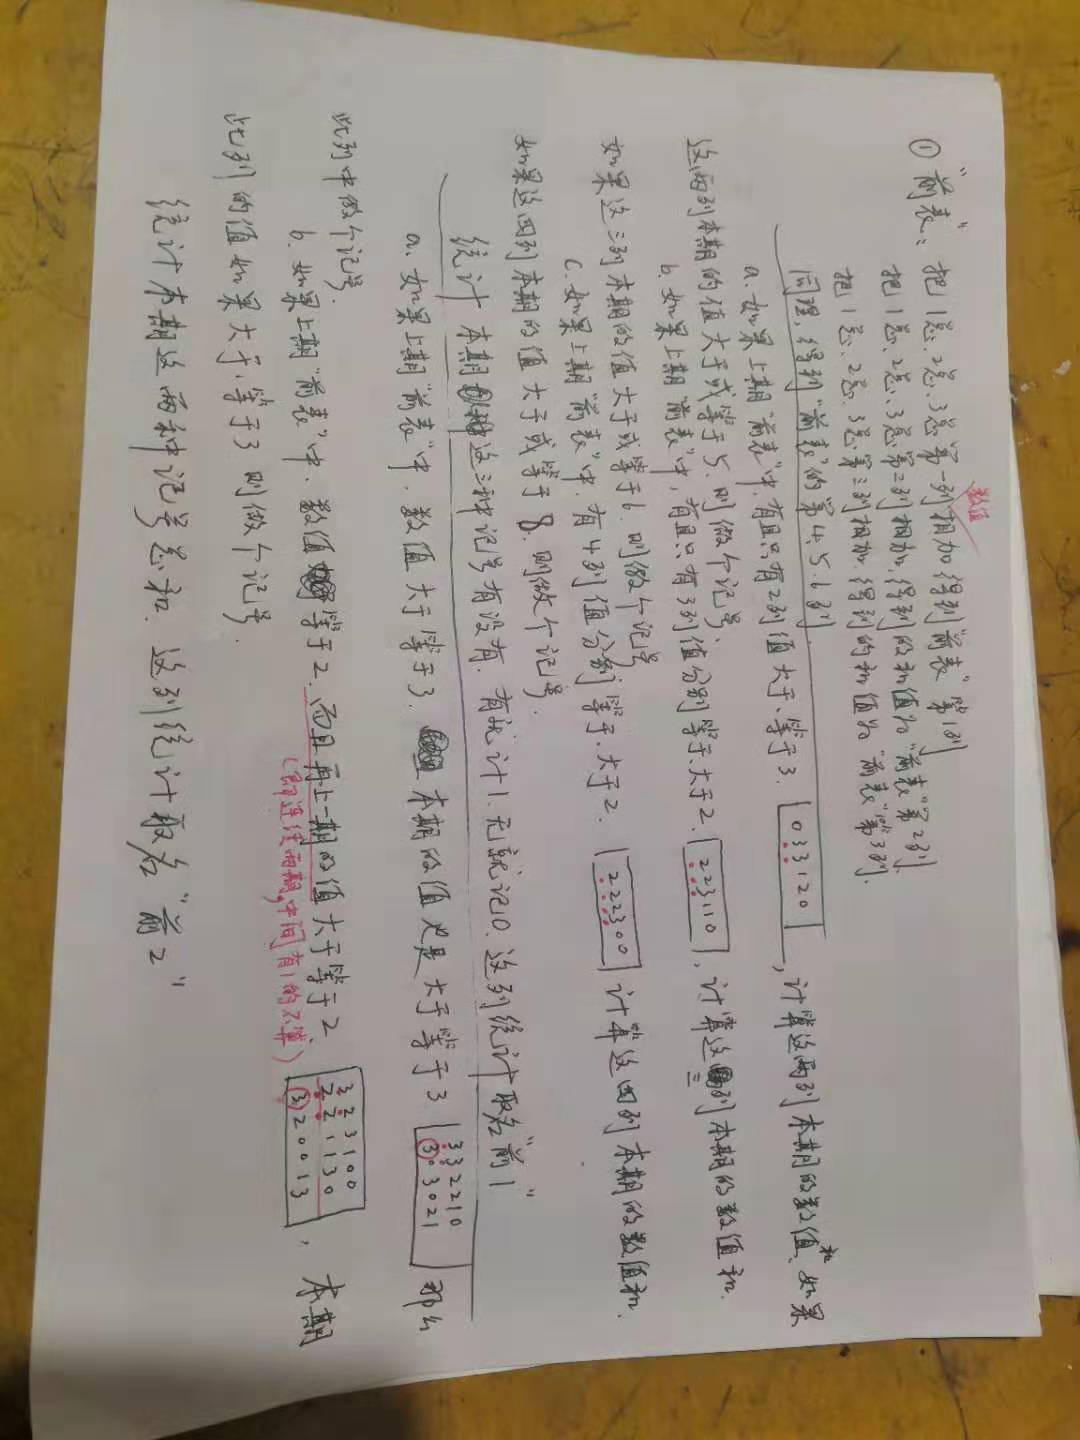 数值
①“前表”: 把1总、2总、3总第一列相加得到“前表”第1列
把1总、2总、3总第二列相加,得到的和值为“前表”第2列.
把1总、2总、3总第三列相加.得到的和值为“前表”第3列.
同理,得到“前表”的第4、5、6列.
a.如果上期“前表”中,有且只有2列值大于、等于3. 033120 ,计算这两列本期的数值和、如果
这两列本期的值大于或等于5.则做个记号.
b.如果上期“前表”中,有且只有3列值分别等于、大于2. 223110 ,计算这三列本期的数值和.
如果这三列本期的值大于或等于6.则做个记号
c.如果上期“前表”中.有4列值分别等于、大于2. 222300 计算这四列本期的数值和.
如果这四列本期的值大于或等于8.则做个记号.
统计本期这三种记号有没有.有就计1.无就记0.这列统计取名“前1”
a.如果上期“前表”中.数值大于等于3. 本期的值也是大于等于3 332210 那么
303021
此列中做个记号.
b.如果上期“前表”中.数值等于2.而且再上一期的值大于等于2. 323100
221130
320013 ,本期
(即连续两期,中间有1的不算)
此列的值如果大于、等于3则做个记号.
统计本期这两种记号总和.这列统计取名“前2”